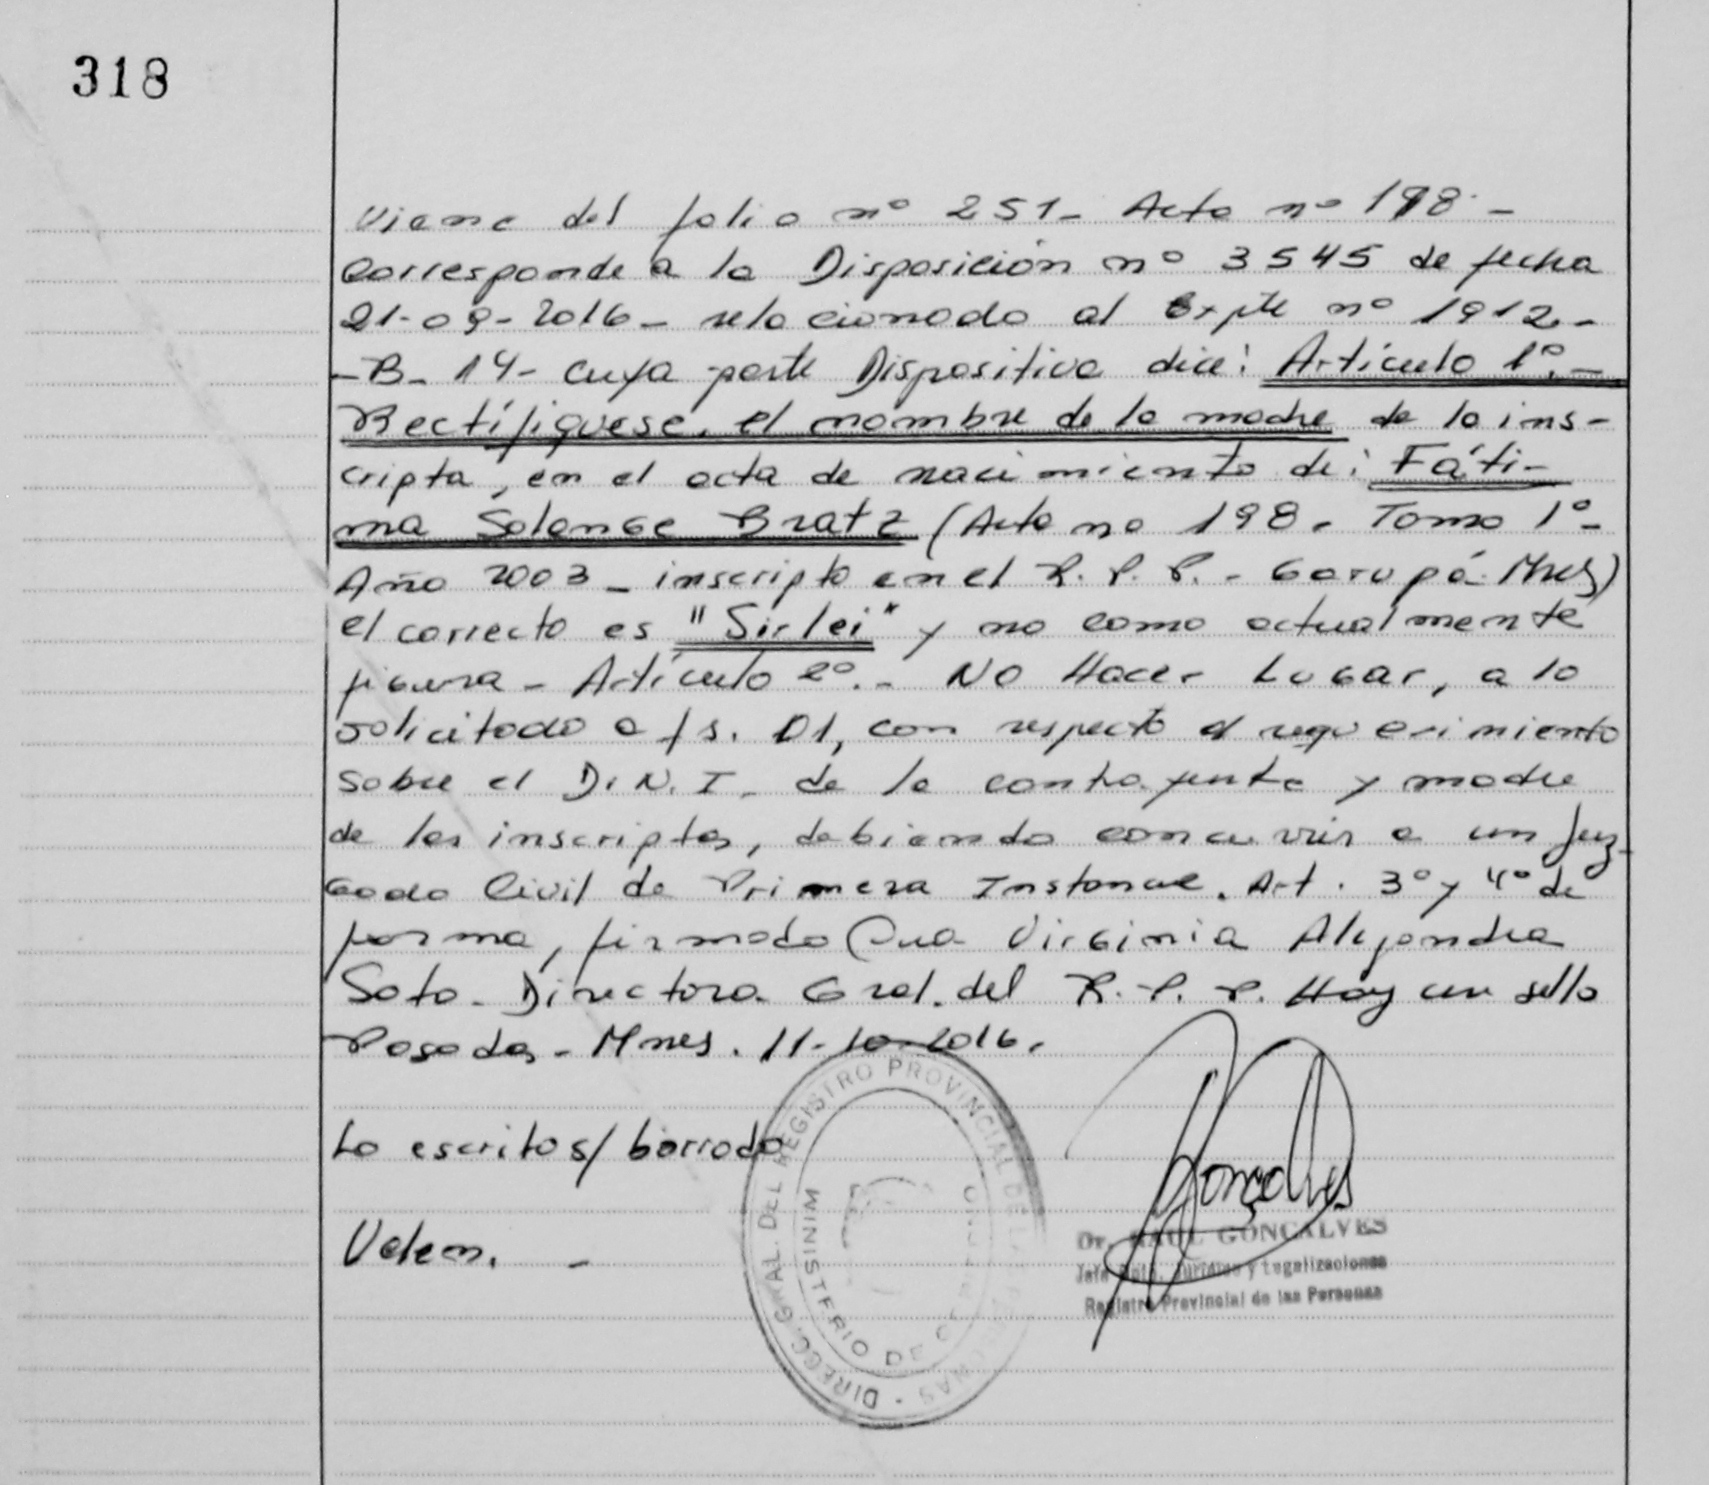 318
Viene del folio nº 251- Acta nº 198. -
Corresponde a la Disposición nº 3545 de fecha
21-09-2016- relacionado al Expte nº 1912.-
-B- 14- cuya parte Dispositiva dice: Artículo 1º.-
Rectifíquese, el nombre de la madre de la ins-
cripta, en el acta de nacimiento de: Fáti-
ma Solange Bratz (Acta nº 198. Tomo 1º-
Año 2003 - inscripta en el R. P. P. - Garupá-Mnes)
el correcto es "Sirlei" y no como actualmente
figura - Artículo 2º.- No Hacer Lugar, a lo
solicitado a fs. 01, con respecto al requerimiento
sobre el D.N.I. de la contrayente y madre
de las inscriptas, debiendo concurrir a un Juz-
gado Civil de Primera Instancia. Art. 3º y 4º de
forma, firmado Virginia Alejandra
Soto- Directora Gral. del R. P. P. Hay un sello
Posadas- Mnes. 11-10-2016.
Lo escrito s/ borrado
Valen. -
DIRECC. GRAL. DEL REGISTRO PROVINCIAL DE LAS PERSONAS
MINISTERIO DE
Gonçalves
Dr. RAUL GONCALVES
Jefe Dpto. Jurídico y Legalizaciones
Registro Provincial de las Personas